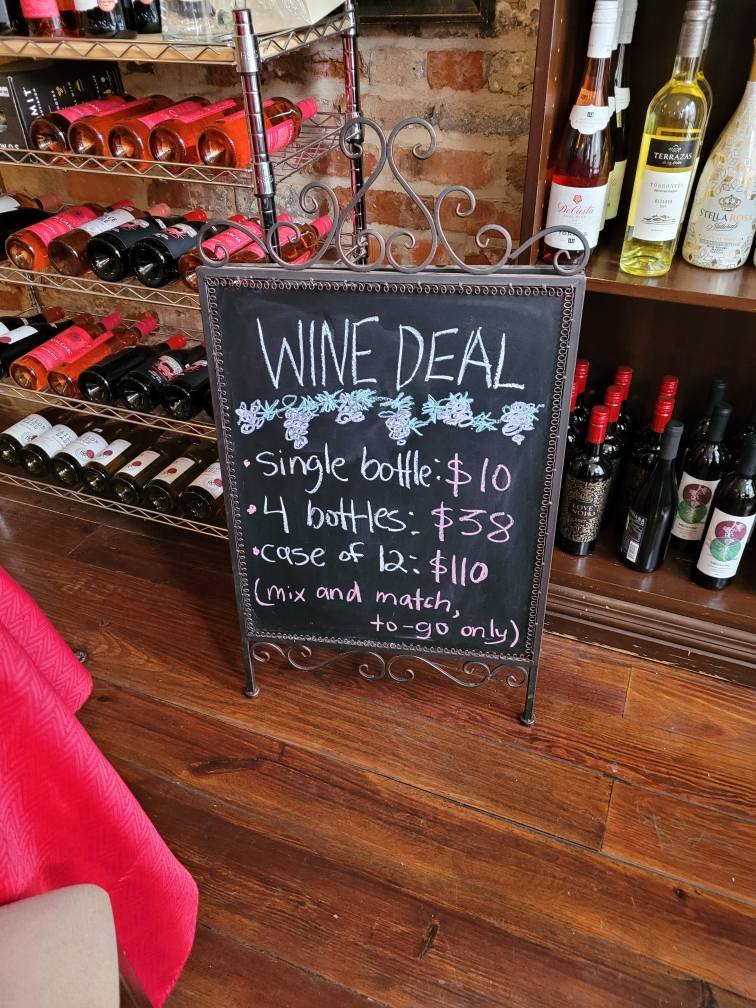 WINE DEAL
• single bottle: $10
• 4 bottles: $38
• case of 12: $110
(mix and match,
to-go only)
DeCasta
TERRAZAS
TORRONTÉS
RESERVA
STELLA ROSA
LOVE NOIR